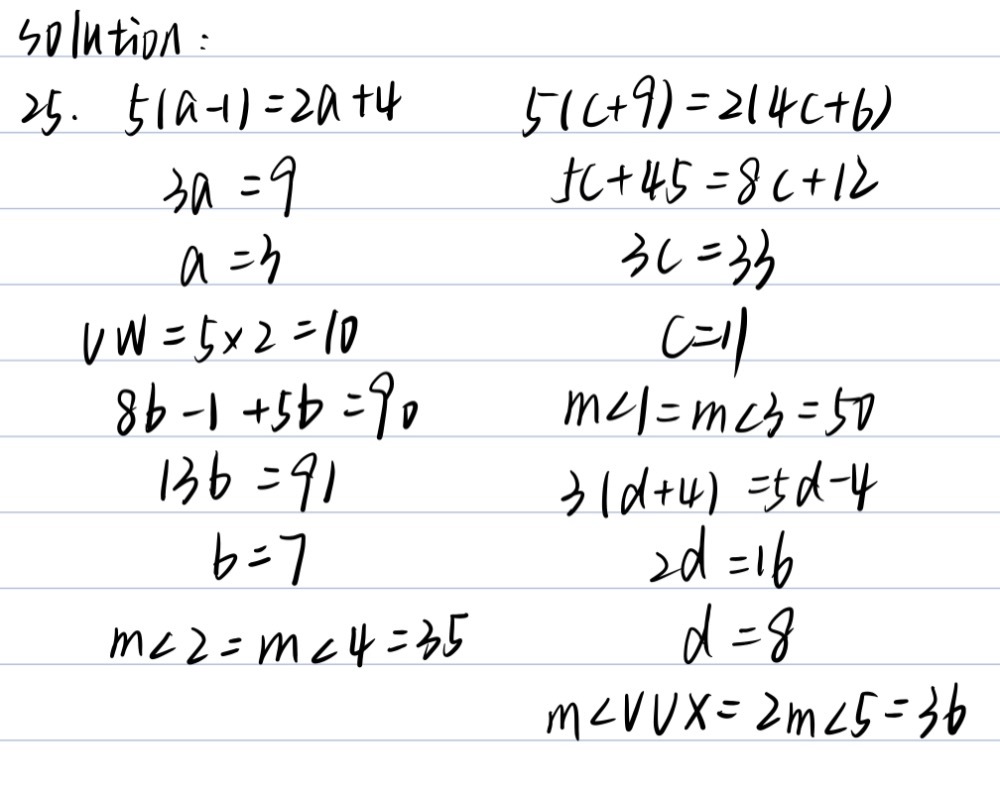 solution:
25. 5(a-1)=2a+4
3a=9
a=3
VW=5×2=10
8b-1+5b=90
13b=91
b=7
m∠2=m∠4=35
5(c+9)=2(4c+6)
5c+45=8c+12
3c=33
c=11
m∠1=m∠3=50
3(d+4)=5d-4
2d=16
d=8
m∠VUX=2m∠5=36